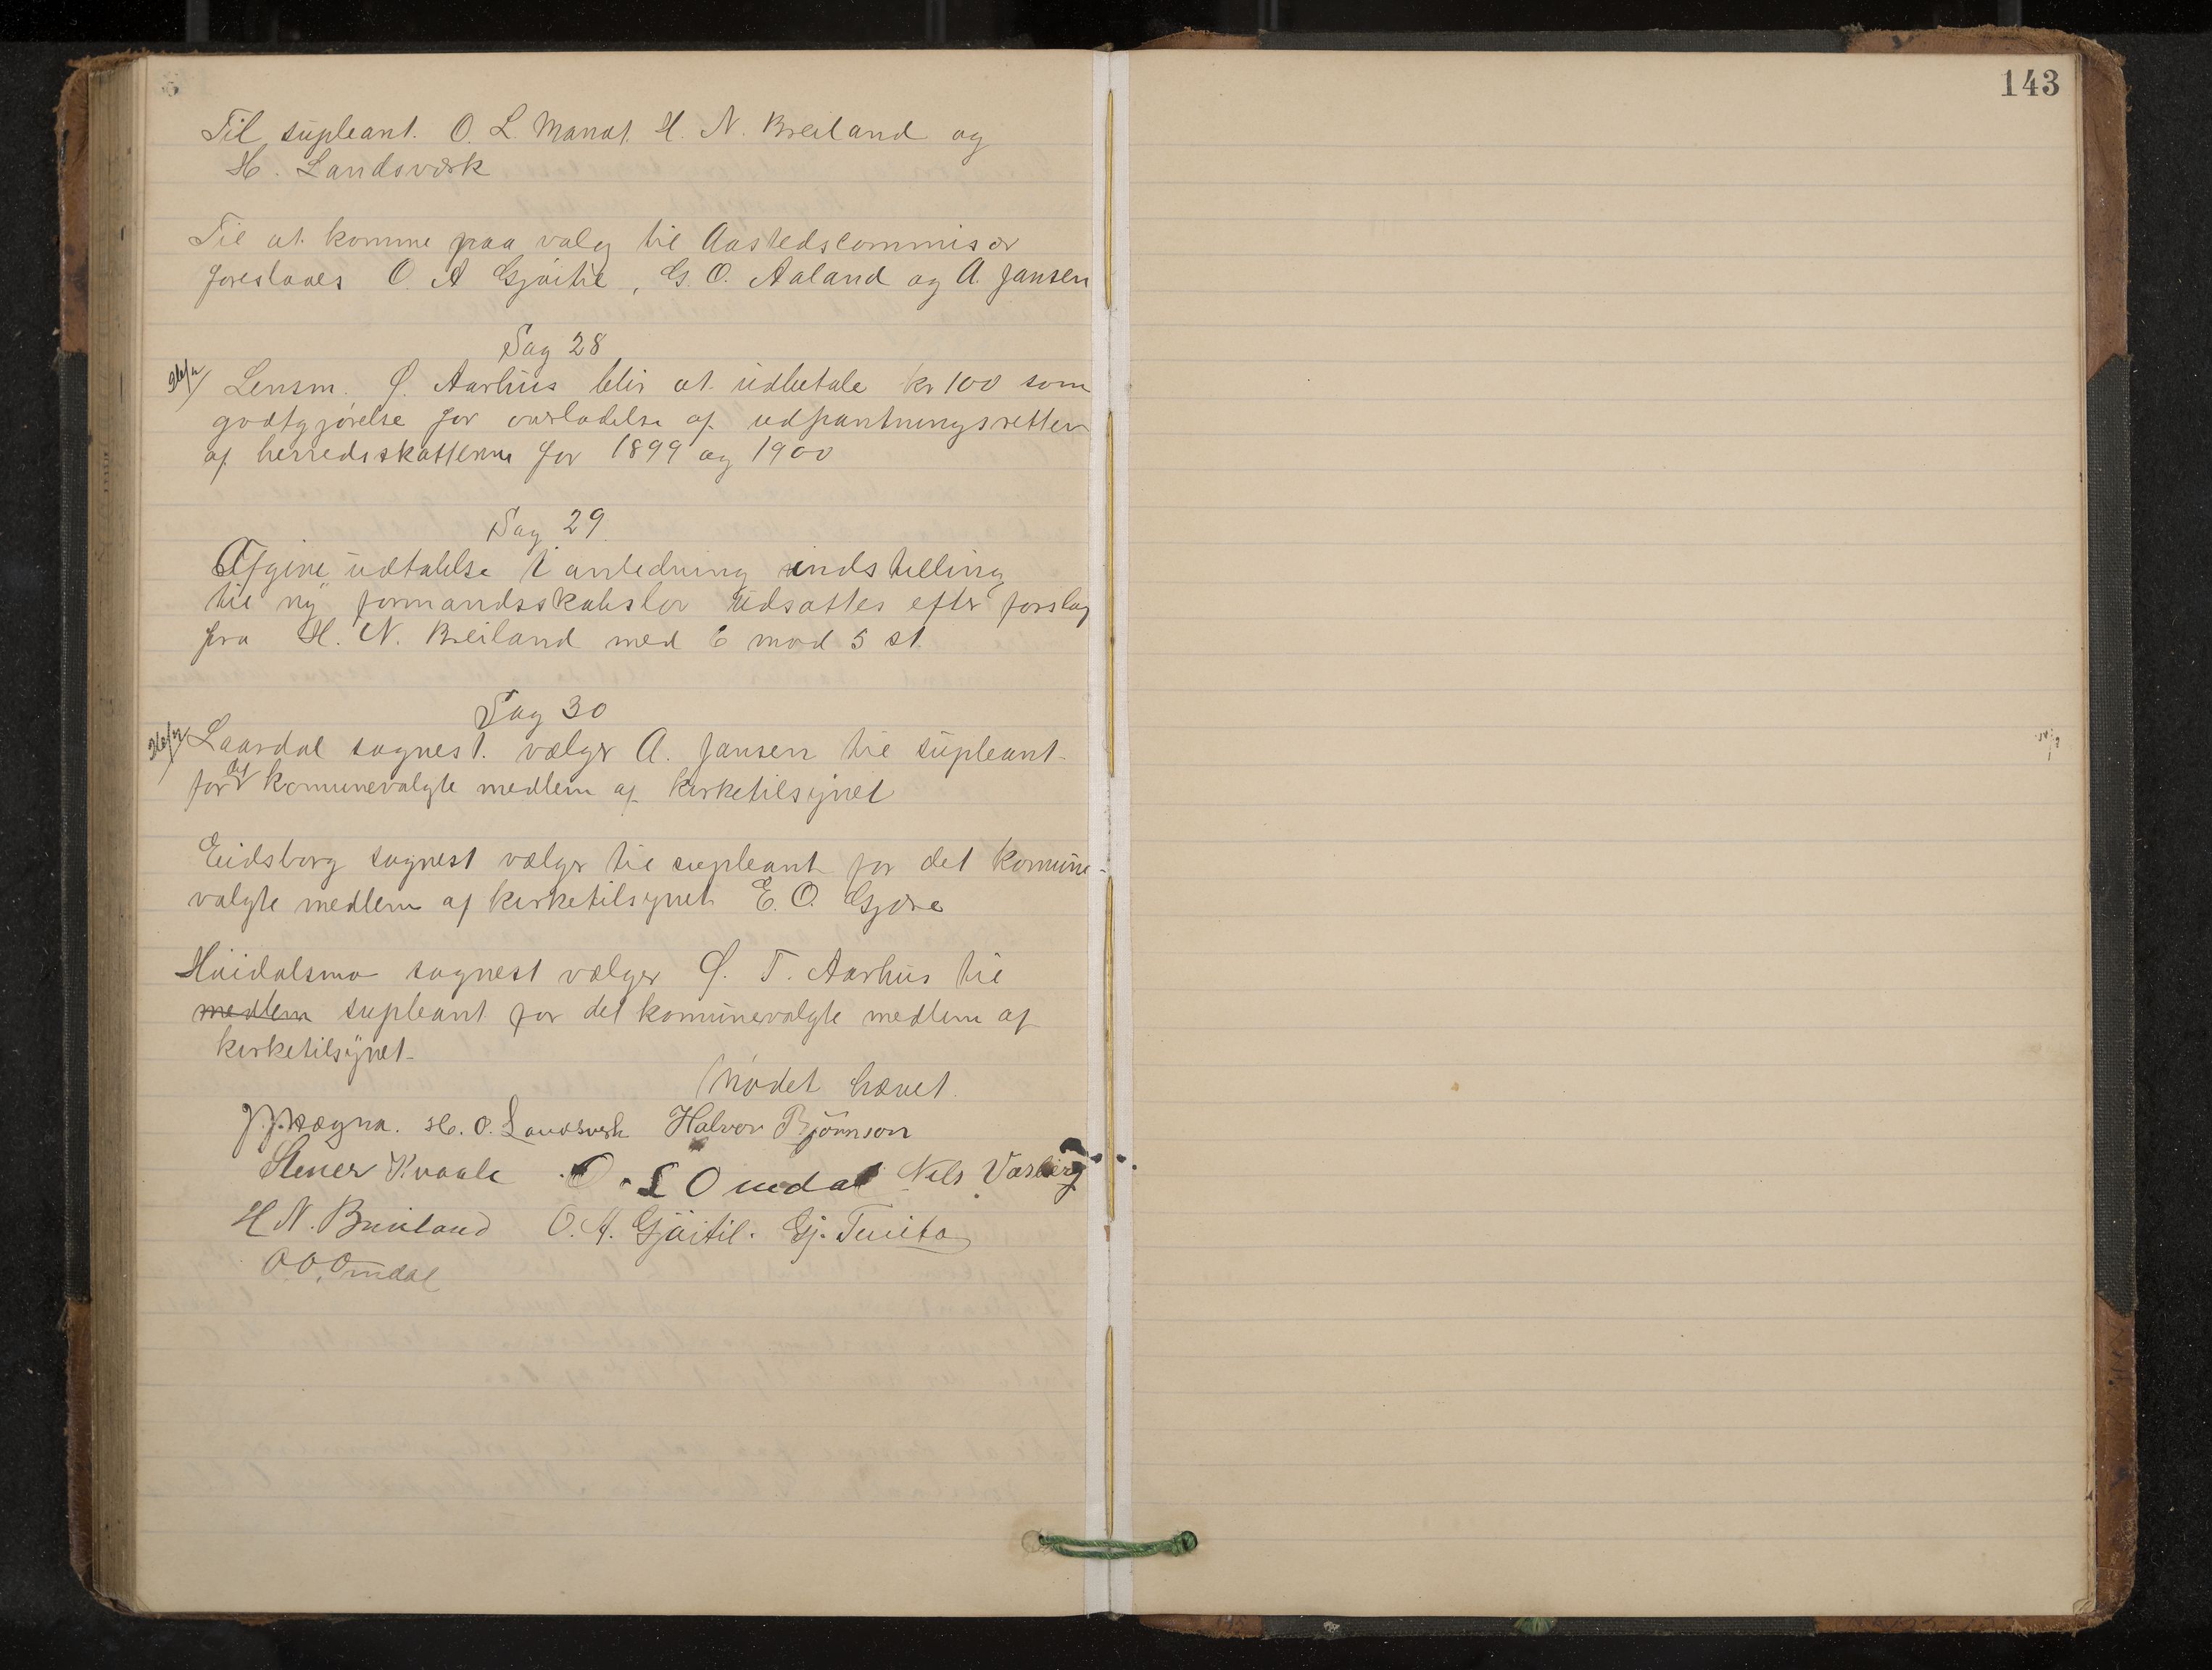 143
Til supleant. O. L. Manat. H. N. Breiland og
H. Landsværk
Til at komme paa valg til Aastedscommisær
foreslaaes O. A Gjøitil, G. O. Aaland og A. Jansen
Sag 28
Lensm. Ø. Aarhus blir at udbetale kr 100 som
godtgjørelse for overladelse af udpantningsretten
af herredsskatterne for 1899 og 1900
Sag 29.
Afgive udtalelse i anledning indstilling
til ny formandsskabslov udsattes efter forslag
fra H. N. Breiland med 6 mod 5 st.
Sag 30
Laardal sognest. vælger A. Jansen til supleant
for det komunevalgte medlem af kirketilsynet
Eidsborg sognest vælger til supleant for det komune-
valgte medlem af kirketilsynet E. O. Gjøre
Høidalsmo sognest vælger Ø. T. Aarhus til
medlem supleant for det komunevalgte medlem af
kirketilsynet.
Mødet hævet.
H. O. Landsverk Halvor Bjørnson
Stener Kvaale O. L Omdal Nils Vasberg
H N. Breiland O. A. Gjøitil. Gj. Tveito
O O Omdal